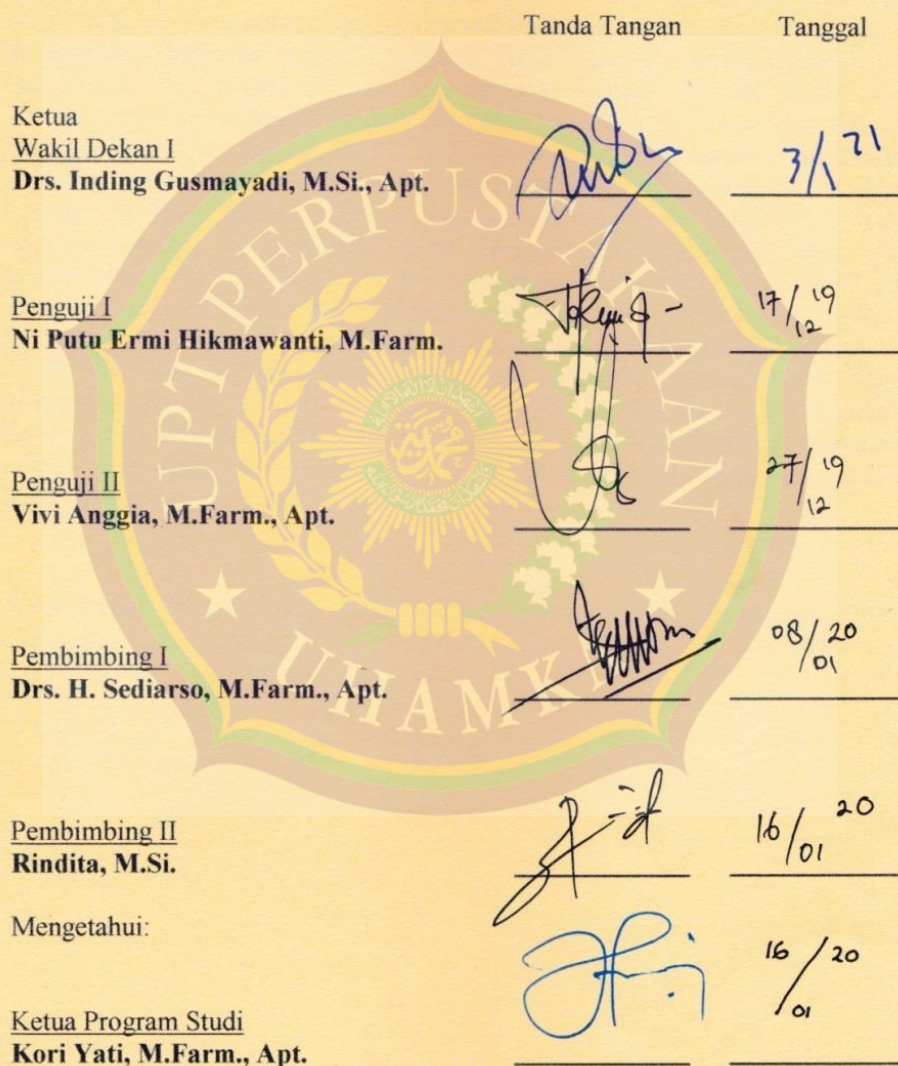 Tanda Tangan Tanggal
Ketua
Wakil Dekan I
Drs. Inding Gusmayadi, M.Si., Apt. 3/1 21
Penguji I
Ni Putu Ermi Hikmawanti, M.Farm. 17/12 19
Penguji II
Vivi Anggia, M.Farm., Apt. 27/12 19
Pembimbing I
Drs. H. Sediarso, M.Farm., Apt. 08/01 20
Pembimbing II
Rindita, M.Si. 16/01 20
Mengetahui:
Ketua Program Studi
Kori Yati, M.Farm., Apt. 16/01 20
UPT PERPUSTAKAAN
UHAMKA